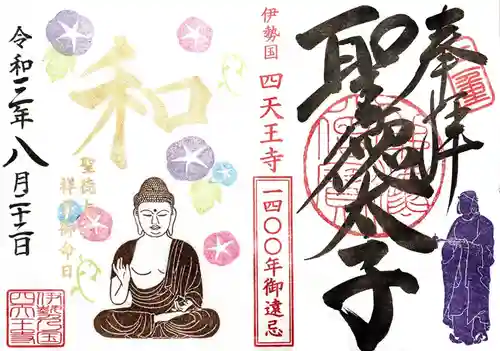 奉拝
聖徳太子
伊勢国 四天王寺
一四〇〇年御遠忌
和
聖徳太子
祥月御命日
令和三年八月二十二日
伊勢国
四天王寺